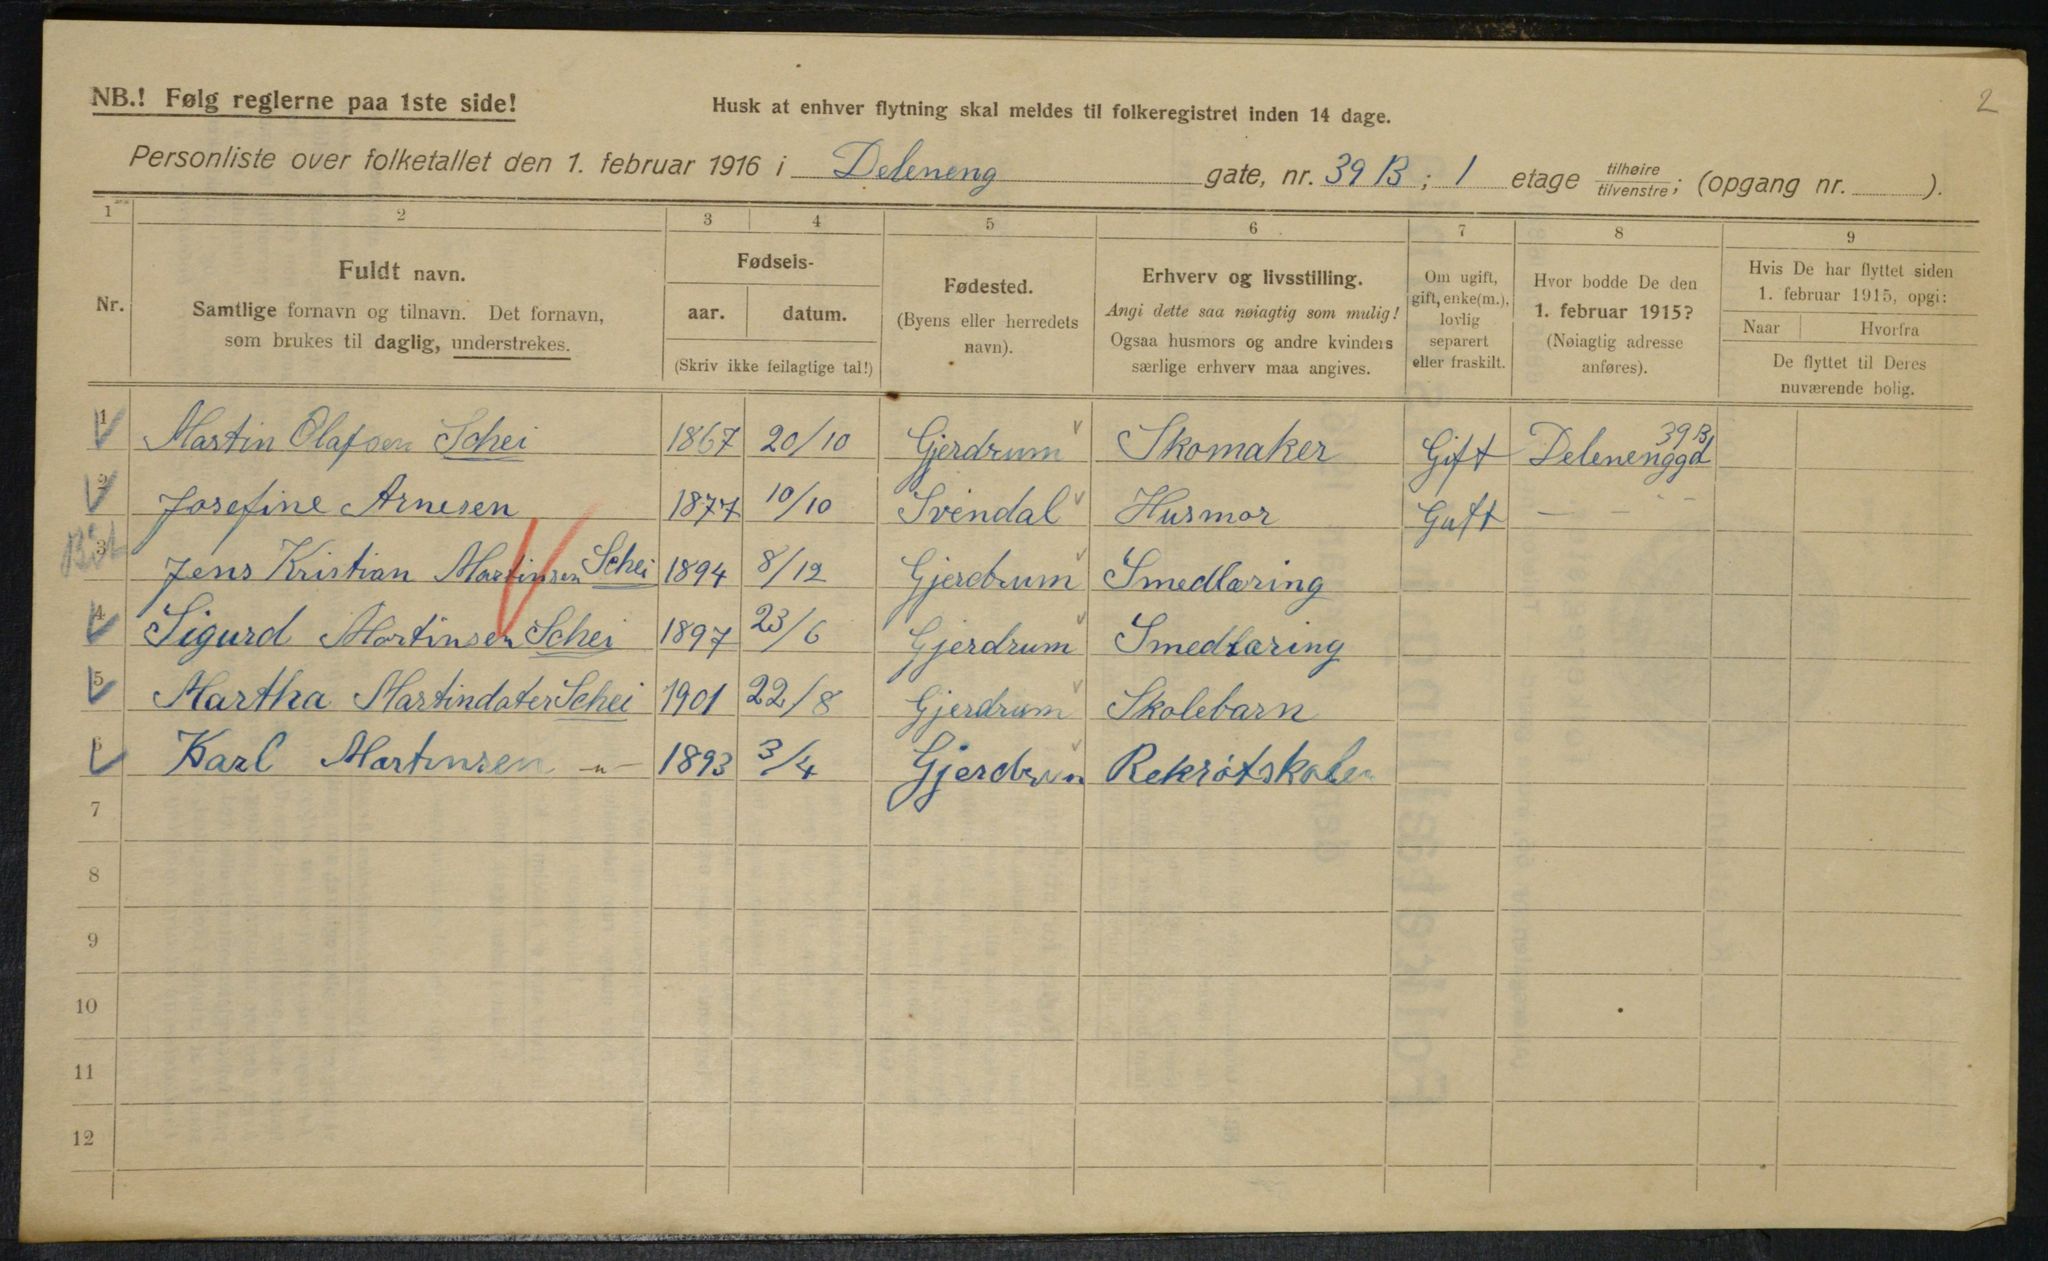 2
NB.! Følg reglerne paa 1ste side!
Husk at enhver flytning skal meldes til folkeregistret inden 14 dage.
Personliste over folketallet den 1. februar 1916 i Deleneng gate, nr. 39 B; 1 etage tilhøire tilvenstre; (opgang nr. ).
1 2 3 4 5 6 7 8 9
Nr.
Fuldt navn.
Samtlige fornavn og tilnavn. Det fornavn,
som brukes til daglig, understrekes.
Fødsels-
aar. datum.
(Skriv ikke feilagtige tal!)
Fødested.
(Byens eller herredets
navn).
Erhverv og livsstilling.
Angi dette saa nøiagtig som mulig!
Ogsaa husmors og andre kvinders
særlige erhverv maa angives.
Om ugift,
gift, enke(m.),
lovlig
separert
eller fraskilt.
Hvor bodde De den
1. februar 1915?
(Nøiagtig adresse
anføres).
Hvis De har flyttet siden
1. februar 1915, opgi:
Naar Hvorfra
De flyttet til Deres
nuværende bolig.
1 Martin Olafsen Schei 1867 20/10 Gjerdrum Skomaker Gift Delenenggd 39 B
2 Josefine Arnesen 1877 10/10 Svendal Husmor Guft — – –
3 Jens Kristian Martinsen Schei 1894 8/12 Gjerdrum Smedlæring
4 Sigurd Martinsen Schei 1897 23/6 Gjerdrum Smedlæring
5 Martha Martindater Schei 1901 22/8 Gjerdrum Skolebarn
6 Karl Martinsen –"– 1893 3/4 Gjerdrum Rekrøtskolen
7
8
9
10
11
12